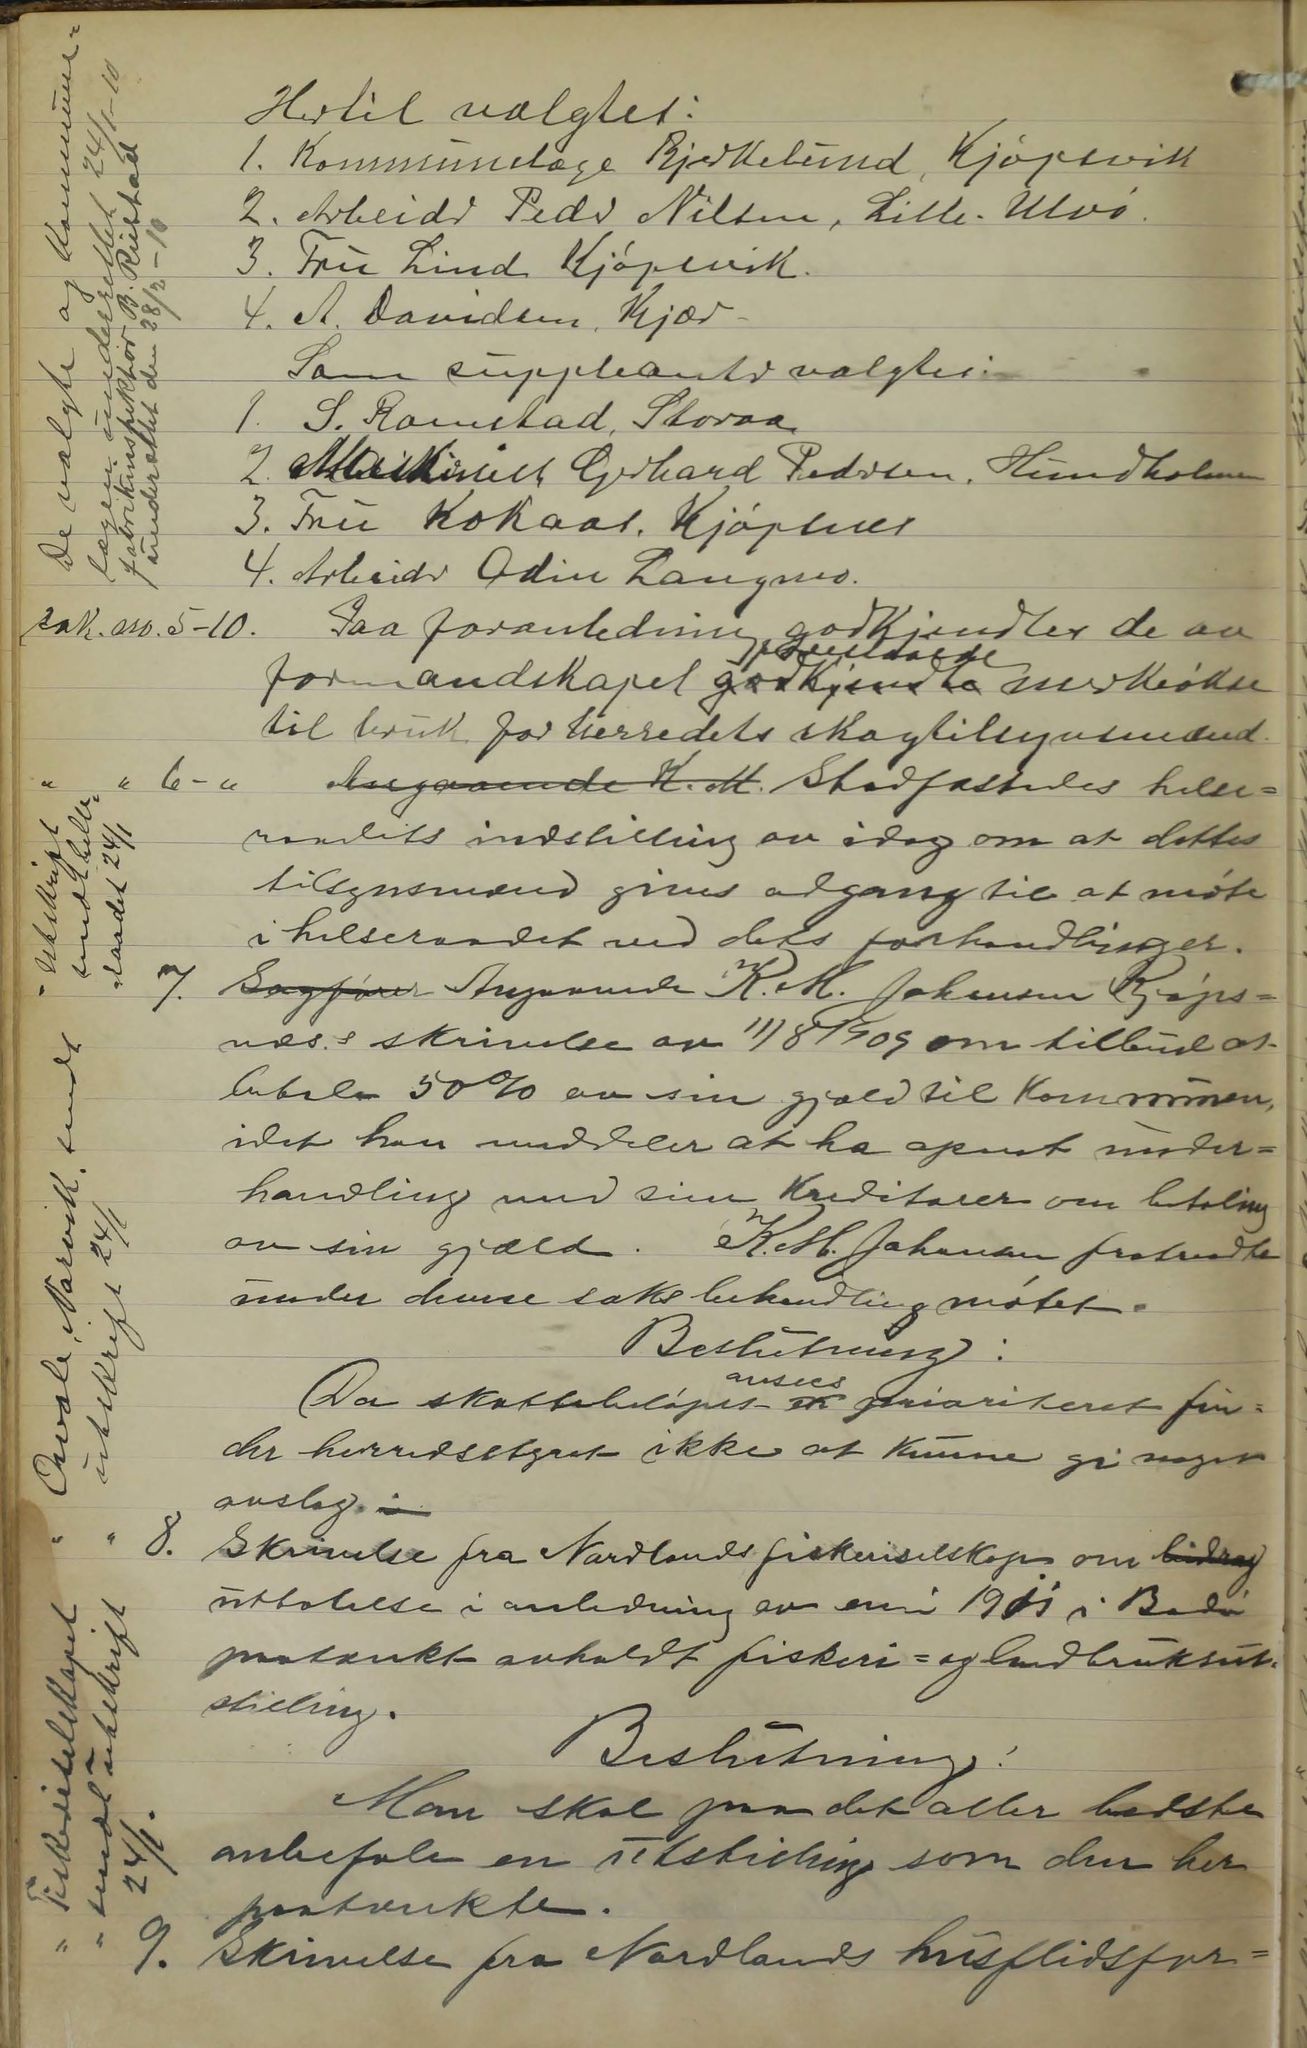 Hertil valgtes:
1. Kommunelæge Bjerkelund, Kjøpsvik
2. Arbeider Peder Nilsen, Lille-Ulvø.
3. Fru Lind Kjøpsvik.
4. A. Davidsen, Kjær
Som suppleanter valgtes:
1. S. Ramstad, Storaa
2. Maskinist Gerhard Pedersen, Hundholmen
3. Fru Kokaas, Kjøpsnes
4. Arbeider Odin Langmo.
Sak. no. 5-10. Paa foranledning godkjendtes de av
formandskapet godkjendte foreslaaede merkeøkse
til bruk for herredets skogtilsynsmænd.
" " 6 - " Angaaende K. M. Stadfæstedes helse=
raadets indstilling av idag om at dettes
tilsynsmænd gives adgang til at møte
i helseraadet ved dets forhandlinger.
7. Sagfører Angaaende K. M. Johansen Kjøps=
næs's skrivelse av 11/8 1909 om tilbud at
betale 50% av sin gjæld til Kommunen,
idet han meddeler at ha åpnet under=
handling med sine kreditorer om betaling
av sin gjæld. K. M. Johansen fratraadte
under denne saks behandling møtet.
Beslutning:
Da skattebeløpet er ansees prioriteret fin=
der herredsstyret ikke at kunne gi noget
avslag.
" " 8. Skrivelse fra Nordlands fiskeriselskap om bidrag
uttalelse i anledning av en i 1911 i Bodø
paatænkt avholdt fiskeri= og landbruksut=
stilling.
Beslutning:
Man skal paa det aller bedste
anbefale en utstilling som den her
paatænkte.
" " 9. Skrivelse fra Nordlands husflidsfor=
De valgte og kommune=
lægen underrettet 24/1-10
fabrikinspektør B. Rustad
underrettet den 28/2-10
Utskrift
sendt helse=
raadet 24/1
Narvik sendt
utskrift 24/1
Fiskeriselskapet
sendt utskrift
24/1.